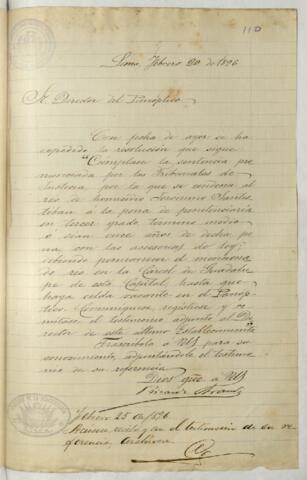 110
Lima, Febrero 20 de 1896
Sr. Director del Panóptico.
Con fecha de ayer se ha
expedido la resolución que sigue
"Cúmplase la sentencia pro
nunciada por los Tribunales de
Justicia por la que se condena al
reo de homicidio Jerónimo Santis
teban á la pena de penitenciaría
en tercer grado, término medio
ó sean once años de dicha pe
na, con las accesorias de ley;
debiendo permanecer el mencionado
reo en la Cárcel de Guadalu
pe de esta Capital, hasta que
haya celda vacante en el Panóp
tico. Comuníquese, regístrese y re
mítase el testimonio adjunto al Di
rector de este último Establecimiento"
Trascríbola á US. para su
conocimiento, adjuntándole el testimo
nio de su referencia.
Dios gue. á US.
Febrero 25 de 1896
recibo con el testimonio de su re
ferencia, archívese